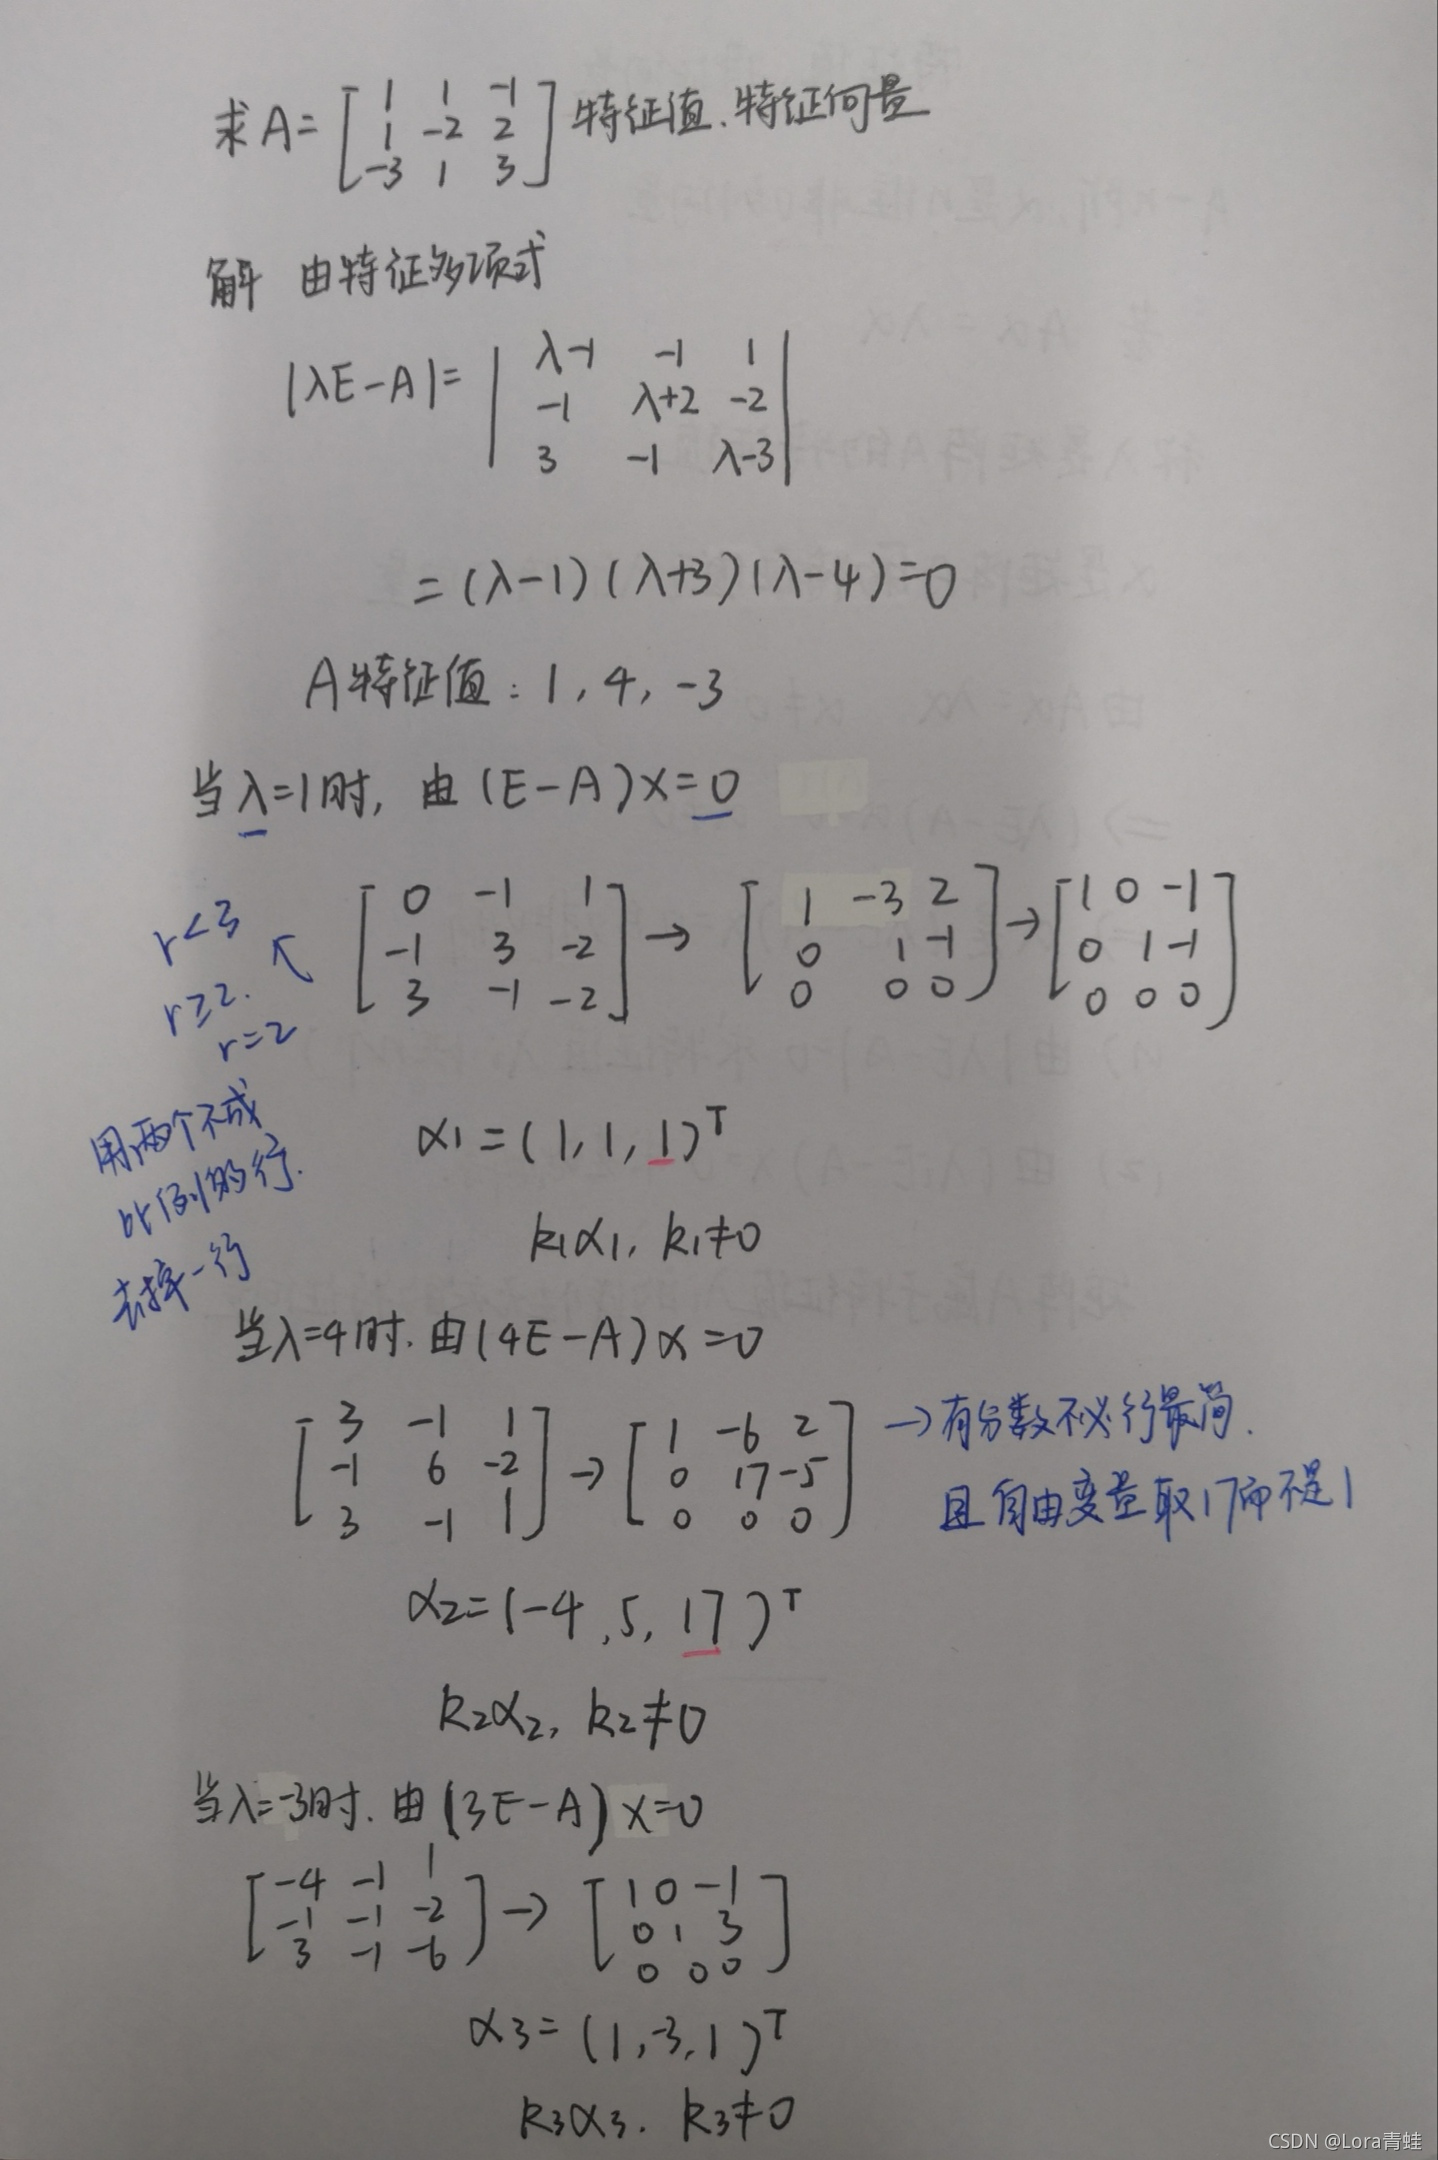 求 A = [ 1 1 -1
1 -2 2
-3 1 3 ] 特征值. 特征向量
解 由特征多项式
|λE-A| = | λ-1 -1 1
-1 λ+2 -2
3 -1 λ-3 |
= (λ-1)(λ+3)(λ-4)=0
A特征值: 1, 4, -3
当λ=1时, 由 (E-A)x=0
r<3
r≥2.
r=2
[ 0 -1 1
-1 3 -2
3 -1 -2 ] → [ 1 -3 2
0 1 -1
0 0 0 ] → [ 1 0 -1
0 1 -1
0 0 0 ]
用两个不成
比例的行.
去掉一行
α1 = (1, 1, 1)ᵀ
k1α1, k1≠0
当λ=4时. 由(4E-A)x=0
[ 3 -1 1
-1 6 -2
3 -1 1 ] → [ 1 -6 2
0 17 -5
0 0 0 ]
→有分数不必行最简.
且自由变量取17而不是1
α2=(-4, 5, 17)ᵀ
k2α2, k2≠0
当λ=-3时. 由(3E-A)x=0
[ -4 -1 1
-1 -1 -2
3 -1 -6 ] → [ 1 0 -1
0 1 3
0 0 0 ]
α3 = (1, -3, 1)ᵀ
k3α3. k3≠0
CSDN @Lora青蛙